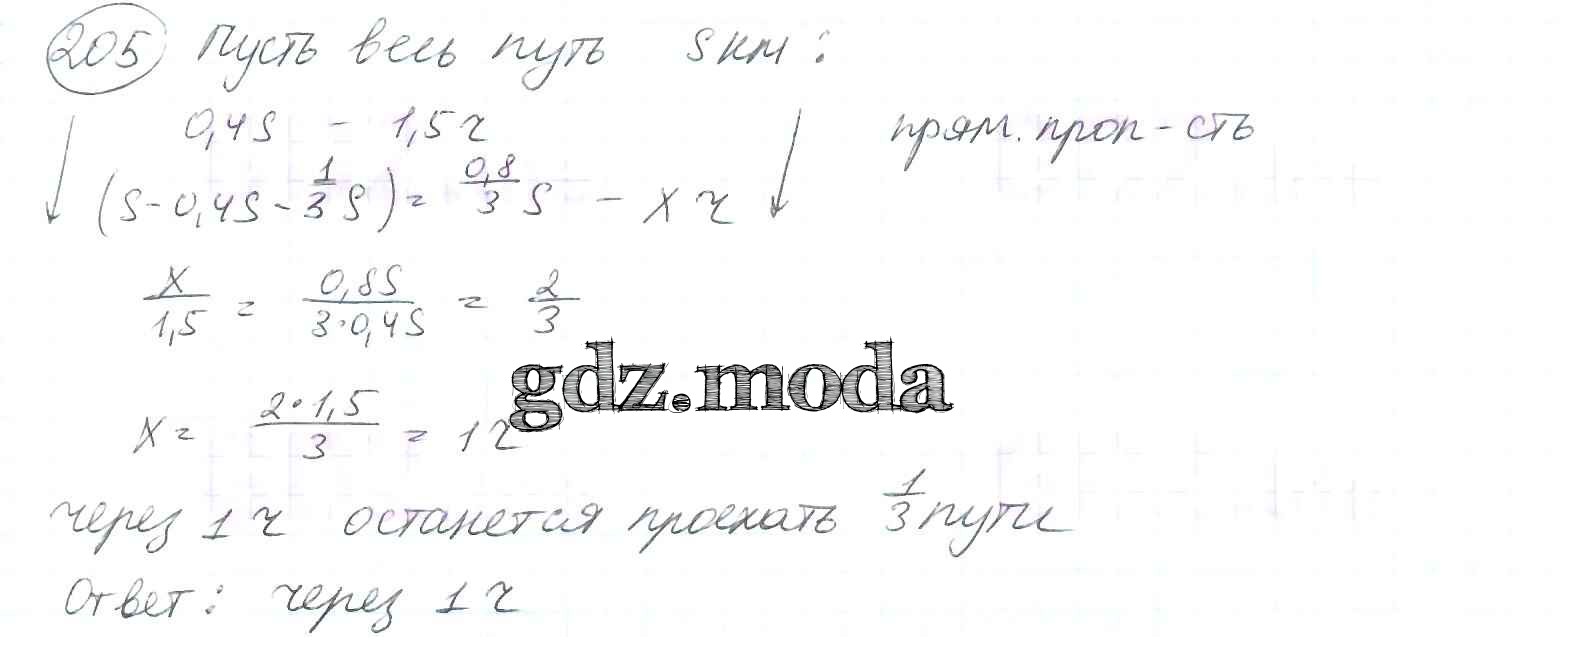 205 Пусть весь путь S км:
0,4S - 1,5 ч прям. проп-сть
(S - 0,4S - 1/3 S) = 0,8/3 S - x ч
x/1,5 = 0,8S/3·0,4S = 2/3
x = 2·1,5/3 = 1 ч
gdz.moda
через 1 ч останется проехать 1/3 пути
Ответ: через 1 ч